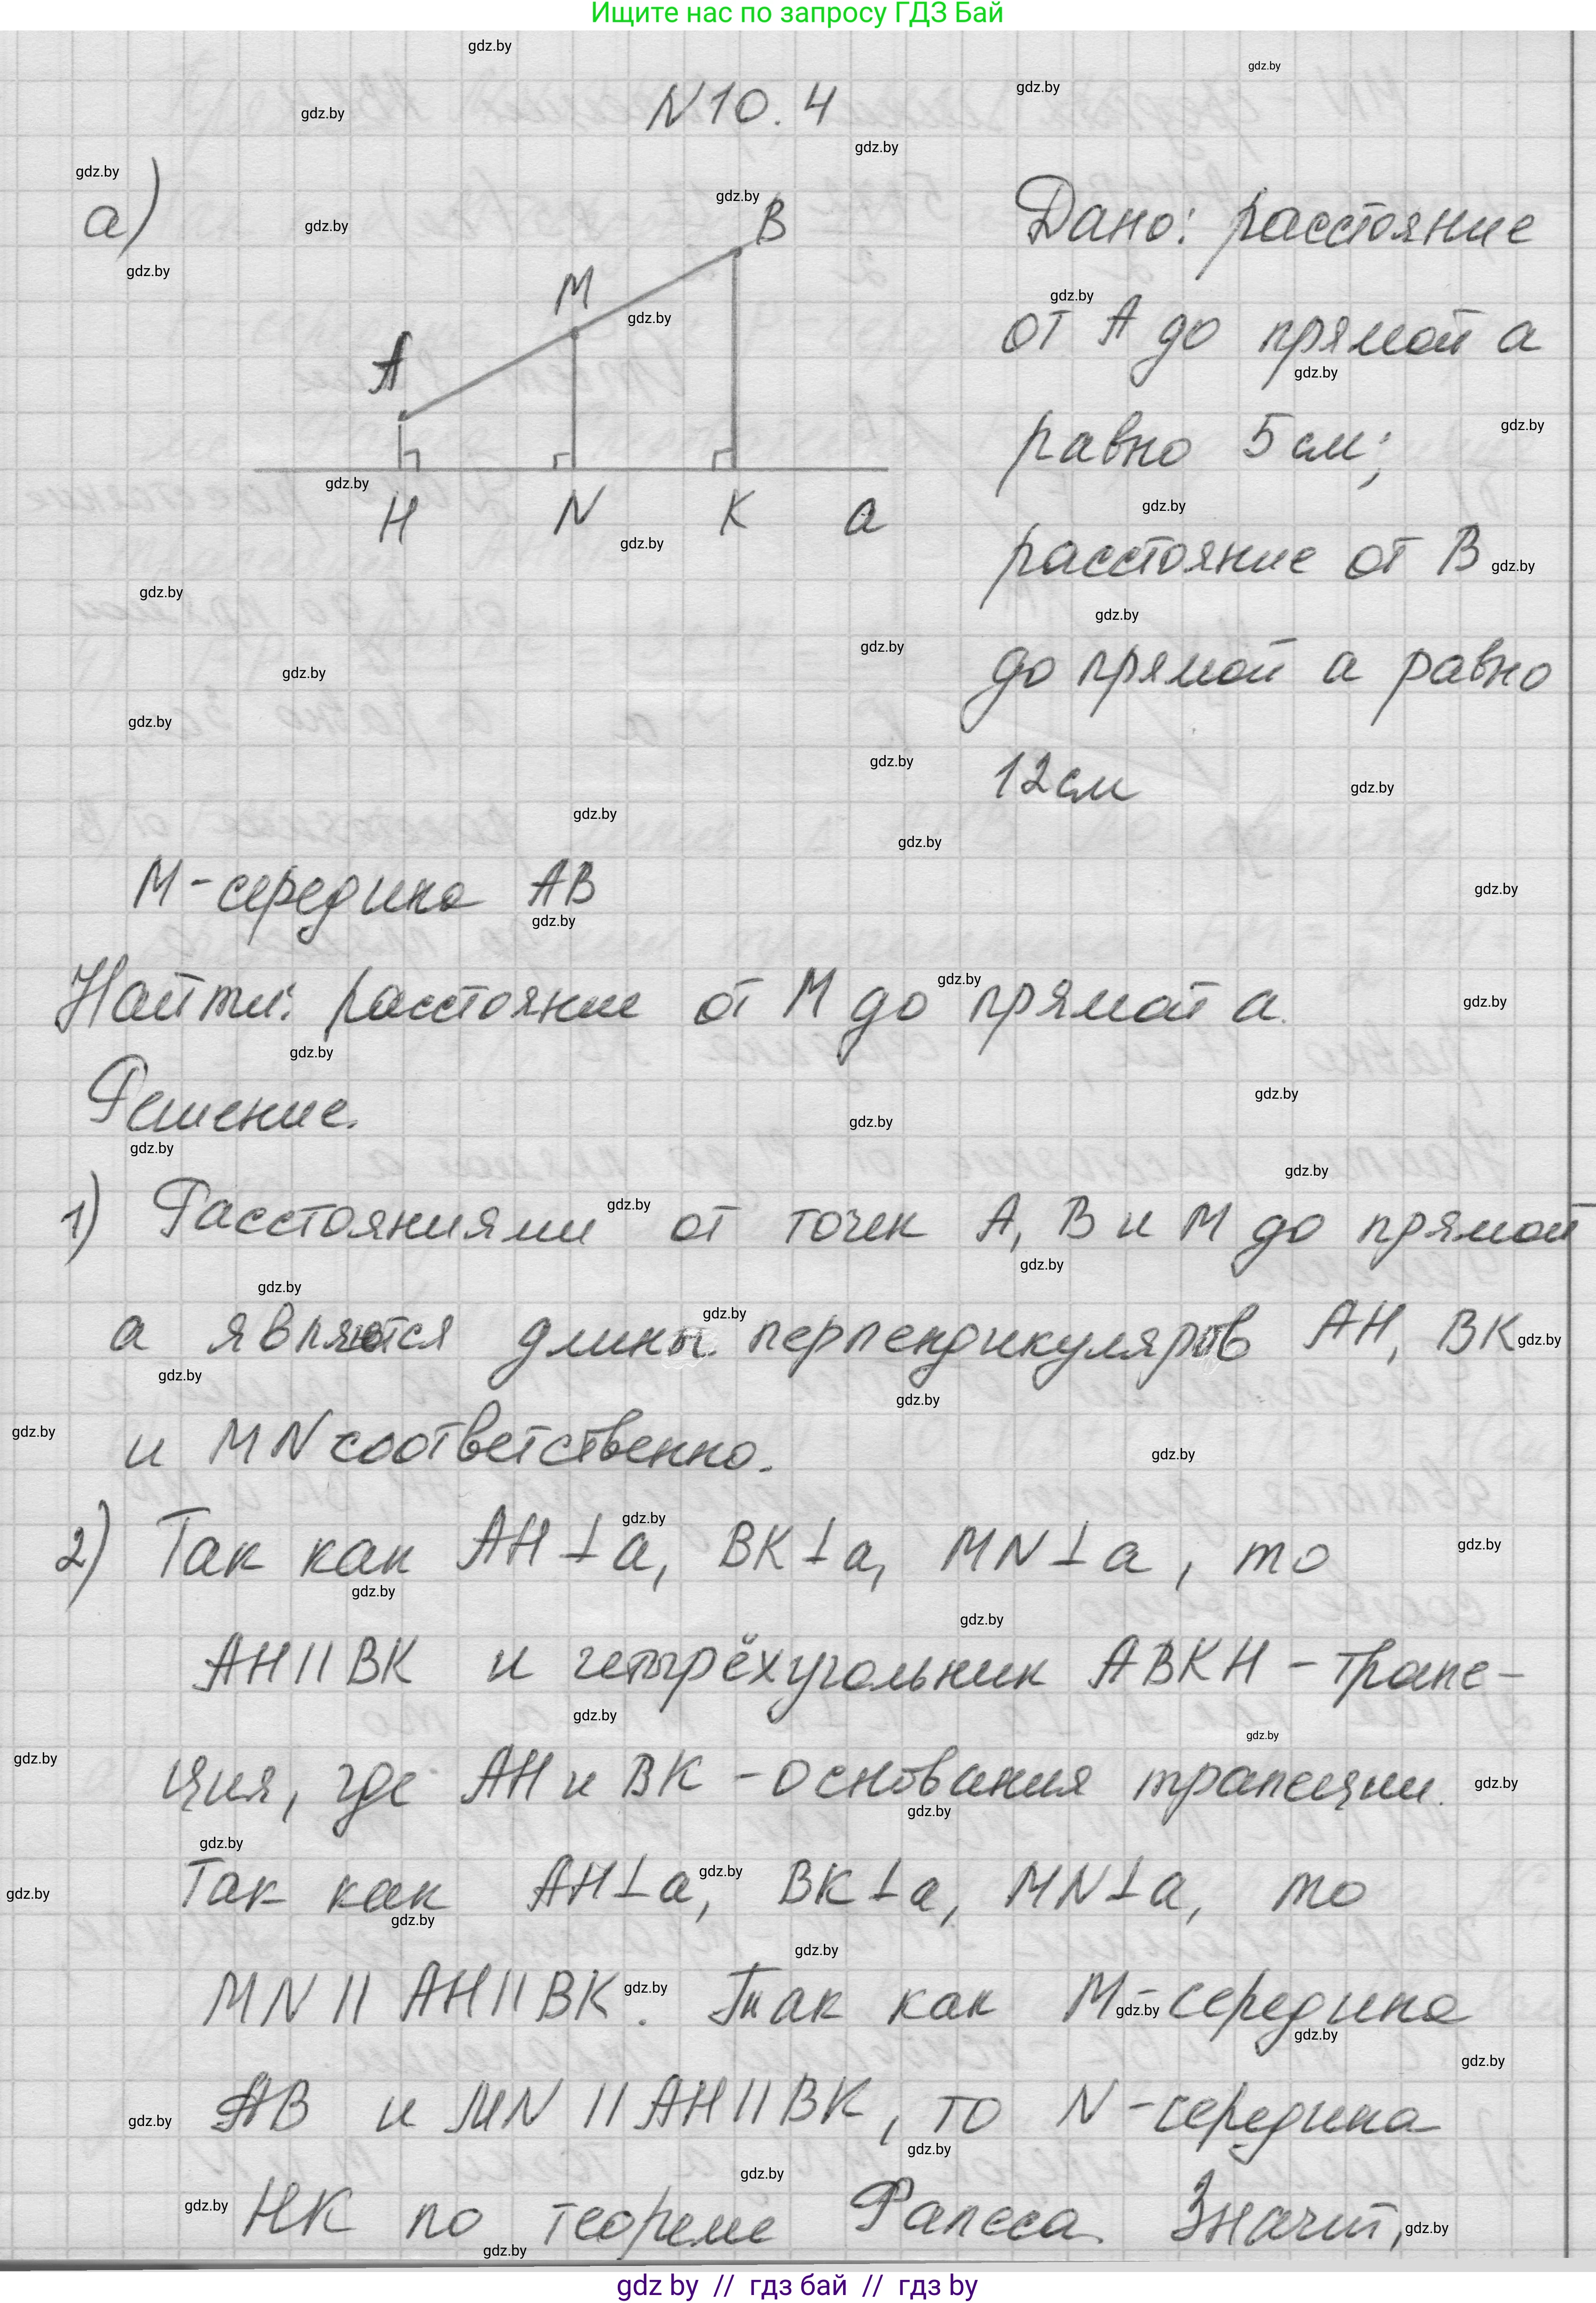 Ищите нас по запросу ГДЗ Бай
N 10.4
а)
A
M
B
H
N
K
a
Дано: расстояние
от A до прямой a
равно 5 см;
расстояние от B
до прямой a равно
12 см
M - середина AB
Найти: расстояние от M до прямой a.
Решение.
1) Расстояниями от точек A, B и M до прямой
a являются длины перпендикуляров AH, BK
и MN соответственно.
2) Так как AH ⊥ a, BK ⊥ a, MN ⊥ a, то
AH || BK и четырёхугольник ABKH - трапе-
ция, где AH и BK - основания трапеции.
Так как AH ⊥ a, BK ⊥ a, MN ⊥ a, то
MN || AH || BK. Так как M - середина
AB и MN || AH || BK, то N - середина
HK по теореме Фалеса. Значит,
gdz by // гдз бай // гдз by